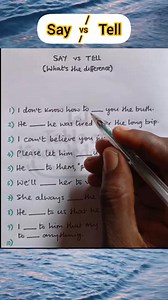 Say vs Tell
SAY vs TELL
(What's the difference)
1) I don't know how to ___ you the truth
2) He ___ he was tired the long trip
3) I can't believe you
4) Please let him ___ us
5) He ___ to them, "
6) We'll ___ her to
7) She always ___ the
8) He ___ to us that
9) I ___ to him that
to ___ anything
10)